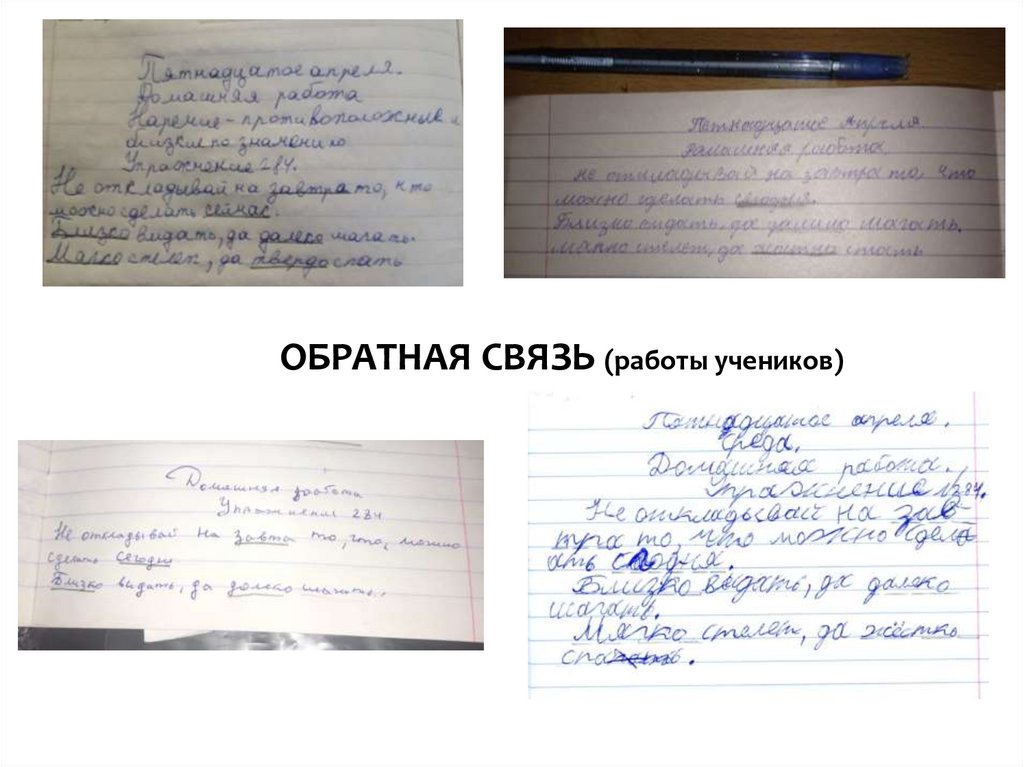 Пятнадцатое апреля.
Домашняя работа
Наречие - противоположные и
близкие по значению
Упражнение 284.
Не откладывай на завтра то, что
можно сделать сейчас.
Близко видать, да далеко шагать.
Мягко стелет, да твердо спать
Пятнадцатое Апреля
Домашняя работа.
Не откладывай на завтра то, что
можно сделать сегодня.
Близко видать, да далико шагать.
мягко стелет, да
ОБРАТНАЯ СВЯЗЬ (работы учеников)
Домашняя работа
Упражнения 284
Не откладывай на завта то, что, можно
сделать сегодня
Близко видить, да далеко шагать.
Пятнадцатое апреля.
Среда.
Домашняя работа.
Упражнение №284.
Не откладывай на зав-
тра то, что можно сдел
ать
Близко видать, да далеко
шагать.
Мягко стелет, да жёстко